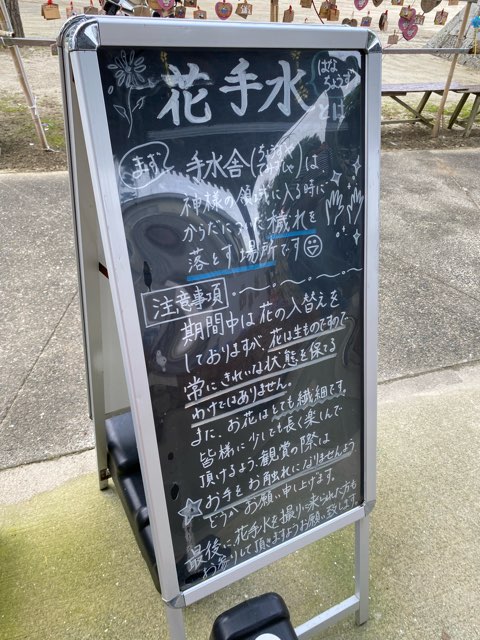 花手水とは
はな
ちょうず
まずは 手水舎(ちょうずや
てみずしゃ)は
神様の領域に入る時に
からだについた穢れを
落とす場所です
注意事項
期間中は花の入替えを
しておりますが、花は生ものですので
常にきれいな状態を保てる
わけではありません。
また、お花はとても繊細です。
皆様に少しでも長く楽しんで
頂けるよう、観賞の際は
お手をお触れになりませんよう
どうかお願い申し上げます。
最後に花手水を撮りに来られた方も
お参りして頂きますようお願い致します。